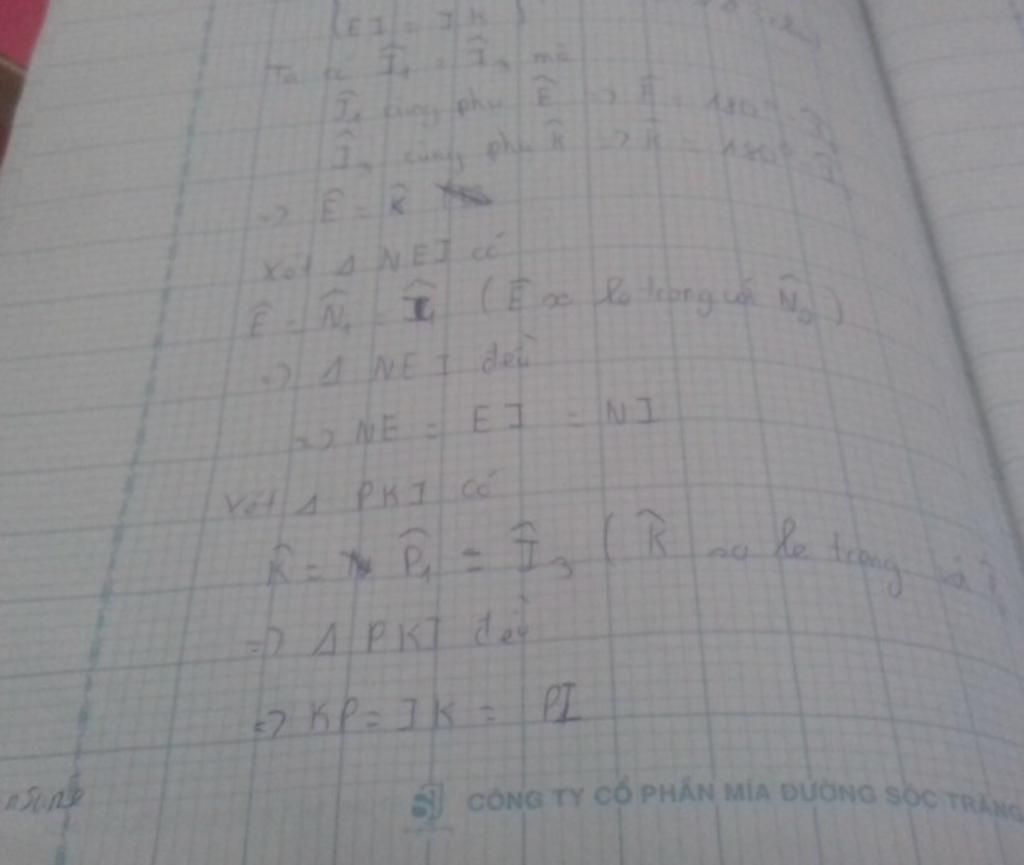 EI = IK
Ta có Î₁ = Î₃ mà
Î₁ cùng phụ Ê => Ê = 180° - Î₁
Î₃ cùng phụ K̂ => K̂ = 180° - Î
=> Ê = K̂
Xét Δ NEI có
Ê = N̂₁ = Î₁ ( Ê so le trong với N̂₂ )
=> Δ NEI đều
=> NE = EI = NI
Xét Δ PKI có
K̂ = P̂₁ = Î₃ ( K̂ so le trong và
=> Δ PKI đều
=> KP = IK = PI
CÔNG TY CỔ PHẦN MÍA ĐƯỜNG SÓC TRĂNG